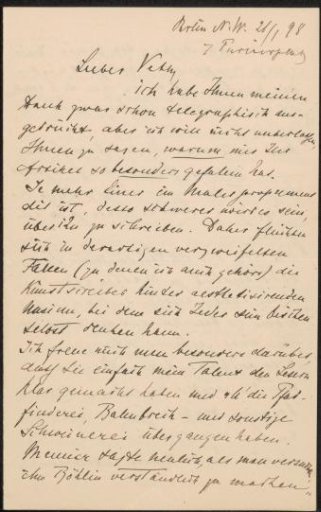 Berlin N.W. 26/1 98
7
Lieber Veth,
ich habe Ihnen meinen
Dank zwar schon telegraphisch aus-
gedrückt, aber ich will nicht unterlassen,
Ihnen zu sagen, warum mir Ihr
Artikel so besonders gefallen hat.
Je mehr Einer ein Maler
ist, desto schwerer wird es sein,
über ihn zu schreiben. Daher flüchten
sich in derartigen verzweifelten
Fällen (zu denen ich auch gehöre) die
Kunstschreiber hinter aesthetisirenden
bei dem sich Jeder ein bischen
selbst denken kann.
Ich freue mich nun besonders darüber,
dass Sie einfach mein Talent den Lesern
klar gemacht haben und all die Pfad-
finderei, Bahnbrech- und sonstige
Schweinerei übergangen haben.
Meunier sagte neulich, als man versuchte
ihm Böklin verständlich zu machen: